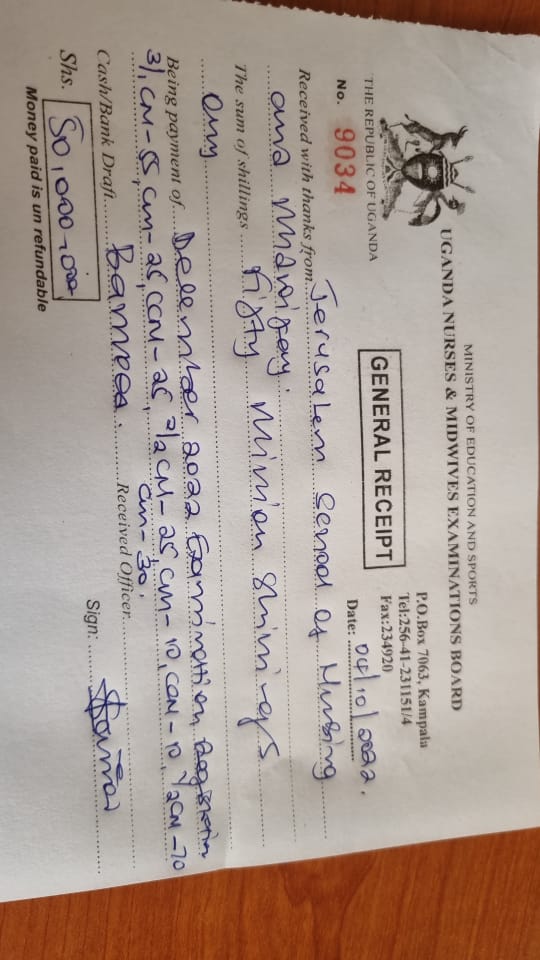 MINISTRY OF EDUCATION AND SPORTS
UGANDA NURSES & MIDWIVES EXAMINATIONS BOARD
P.O.Box 7063, Kampala
Tel:256-41-231151/4
Fax:234920
THE REPUBLIC OF UGANDA
GENERAL RECEIPT
No. 9034
Date: 04/10/2022.
Received with thanks from Jerusalem School of Nursing
and Midwifery.
The sum of shillings Fifty Million Shillings
only
Being payment of December 2022 Examination Registration
3/1, CM-55, CM-25, CCM-25, 2/2 CM-25, CM-10, CCM-10, 1/2CM-70
CM-30.
Cash/Bank Draft Received Officer
Sign:
Shs. 50,000,000
Money paid is un refundable